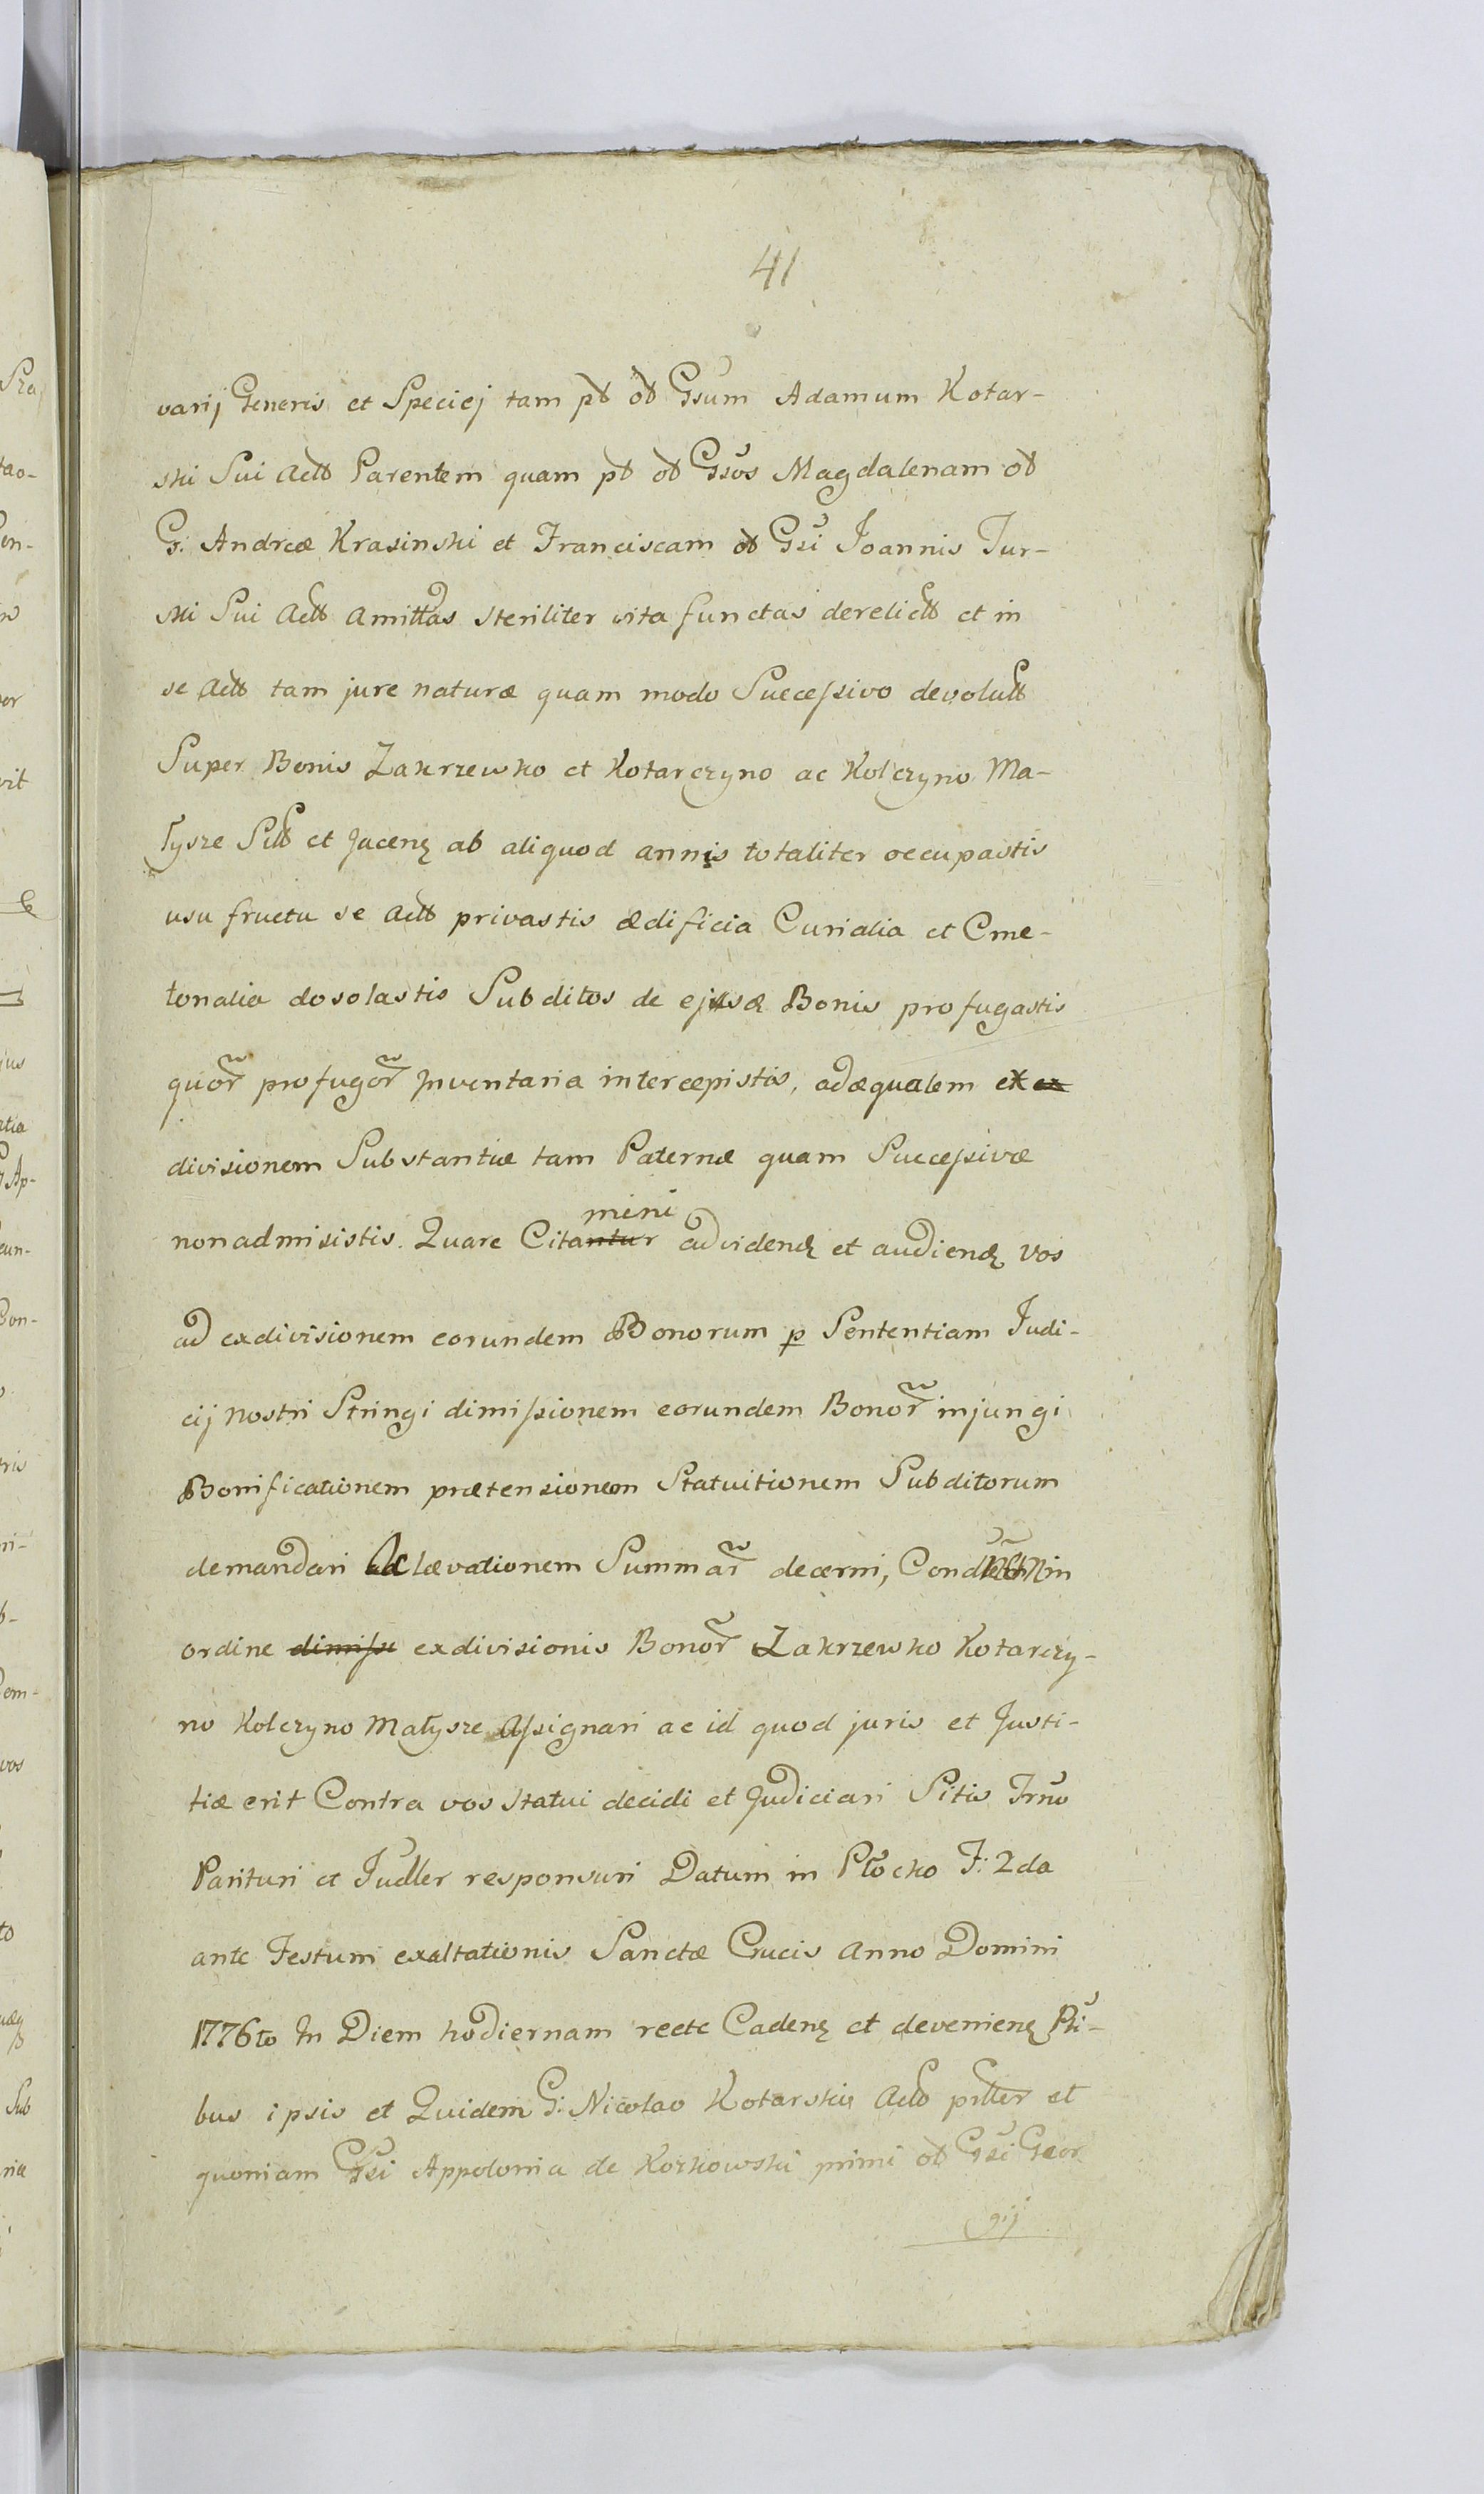 41
varij Generis et Speciej tam ptt ott Gsum Adamum Kotar-
ski Sui Actt Parentem quam ptt ott Gsos Magdalenam ott
G: Andreæ Krasinski et Franciscam ott Gsi Joannis Tur-
ski Sui Actt Amittas steriliter vita functas derelictt et in
se Actt tam jure naturæ quam modo Successivo devolutt
Super Bonis Zakrzewko et Kotarczyno ac Kolczyno Ma-
łysze Sitt et Jacenz ab aliquod annis totaliter occupastis
usu fructu se Actt privastis ædificia Curialia et Cme-
tonalia dosolastis Subditos de ejusd Bonis profugastis
quor profugor Inventaria intercepistis, adæqualem et ex
divisionem Substantiæ tam Paternæ quam Successivæ
mini
non admisistis. Quare Citantur ad videnz et audienz vos
ad exdivisionem eorundem Bonorum p Sententiam Judi-
cij nostri Stringi dimissionem eorundem Bonor injungi
Bonificationem prætensionem Statuitionem Subditorum
demandari lævationem Summar decerni, in
ordine dimisse exdivisionis Bonor Zakrzewko Kotarczy-
no Kolczyno Małysze Assignari ac id quod juris et Justi-
tiæ erit Contra vos statui decidi et Judiciari Sitis Trno
Parituri et Judler responsuri Datum in Płocko F: 2da
ante Festum exaltationis Sanctæ Crucis Anno Domini
1776to In Diem hodiernam recte Cadenz et devenienz Pti-
bus ipsis et Quidem G: Nicolao Kotarski Actt pttter et
quoniam Gsi Appolonia de Korkowski primi ott Gsi Geor
gij